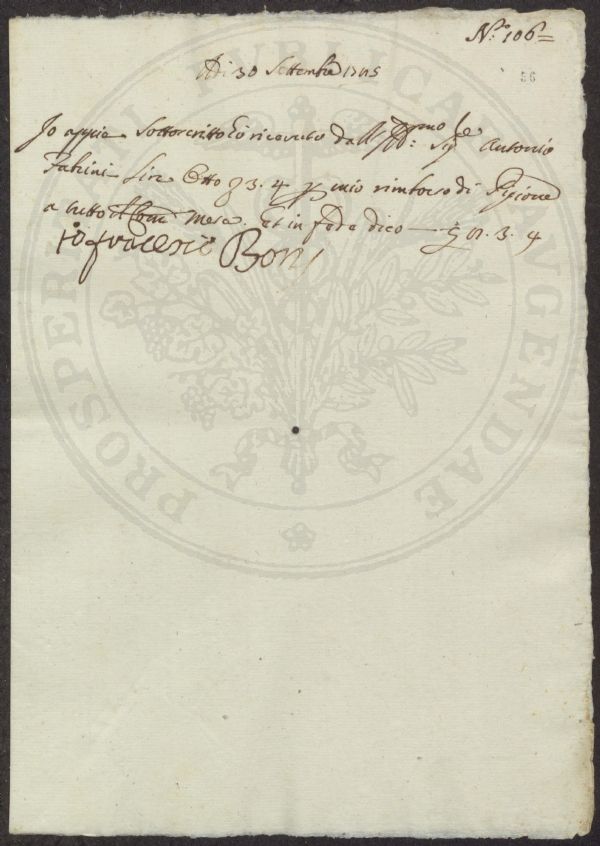 N.º 106=
56
Adi 30 Settembre 1785
Io appiè Sottoscritto ò riceuuto dall Ill.mo Sig.re Antonio
Fabrini Lire Otto 3. 4 p mio rimborso di Pigione
a tutto il Corr.e Mese. Et in fede dico — £ 8. 3. 4
io francesco Boni
PROSPERITATI PUBLICAE AUGENDAE